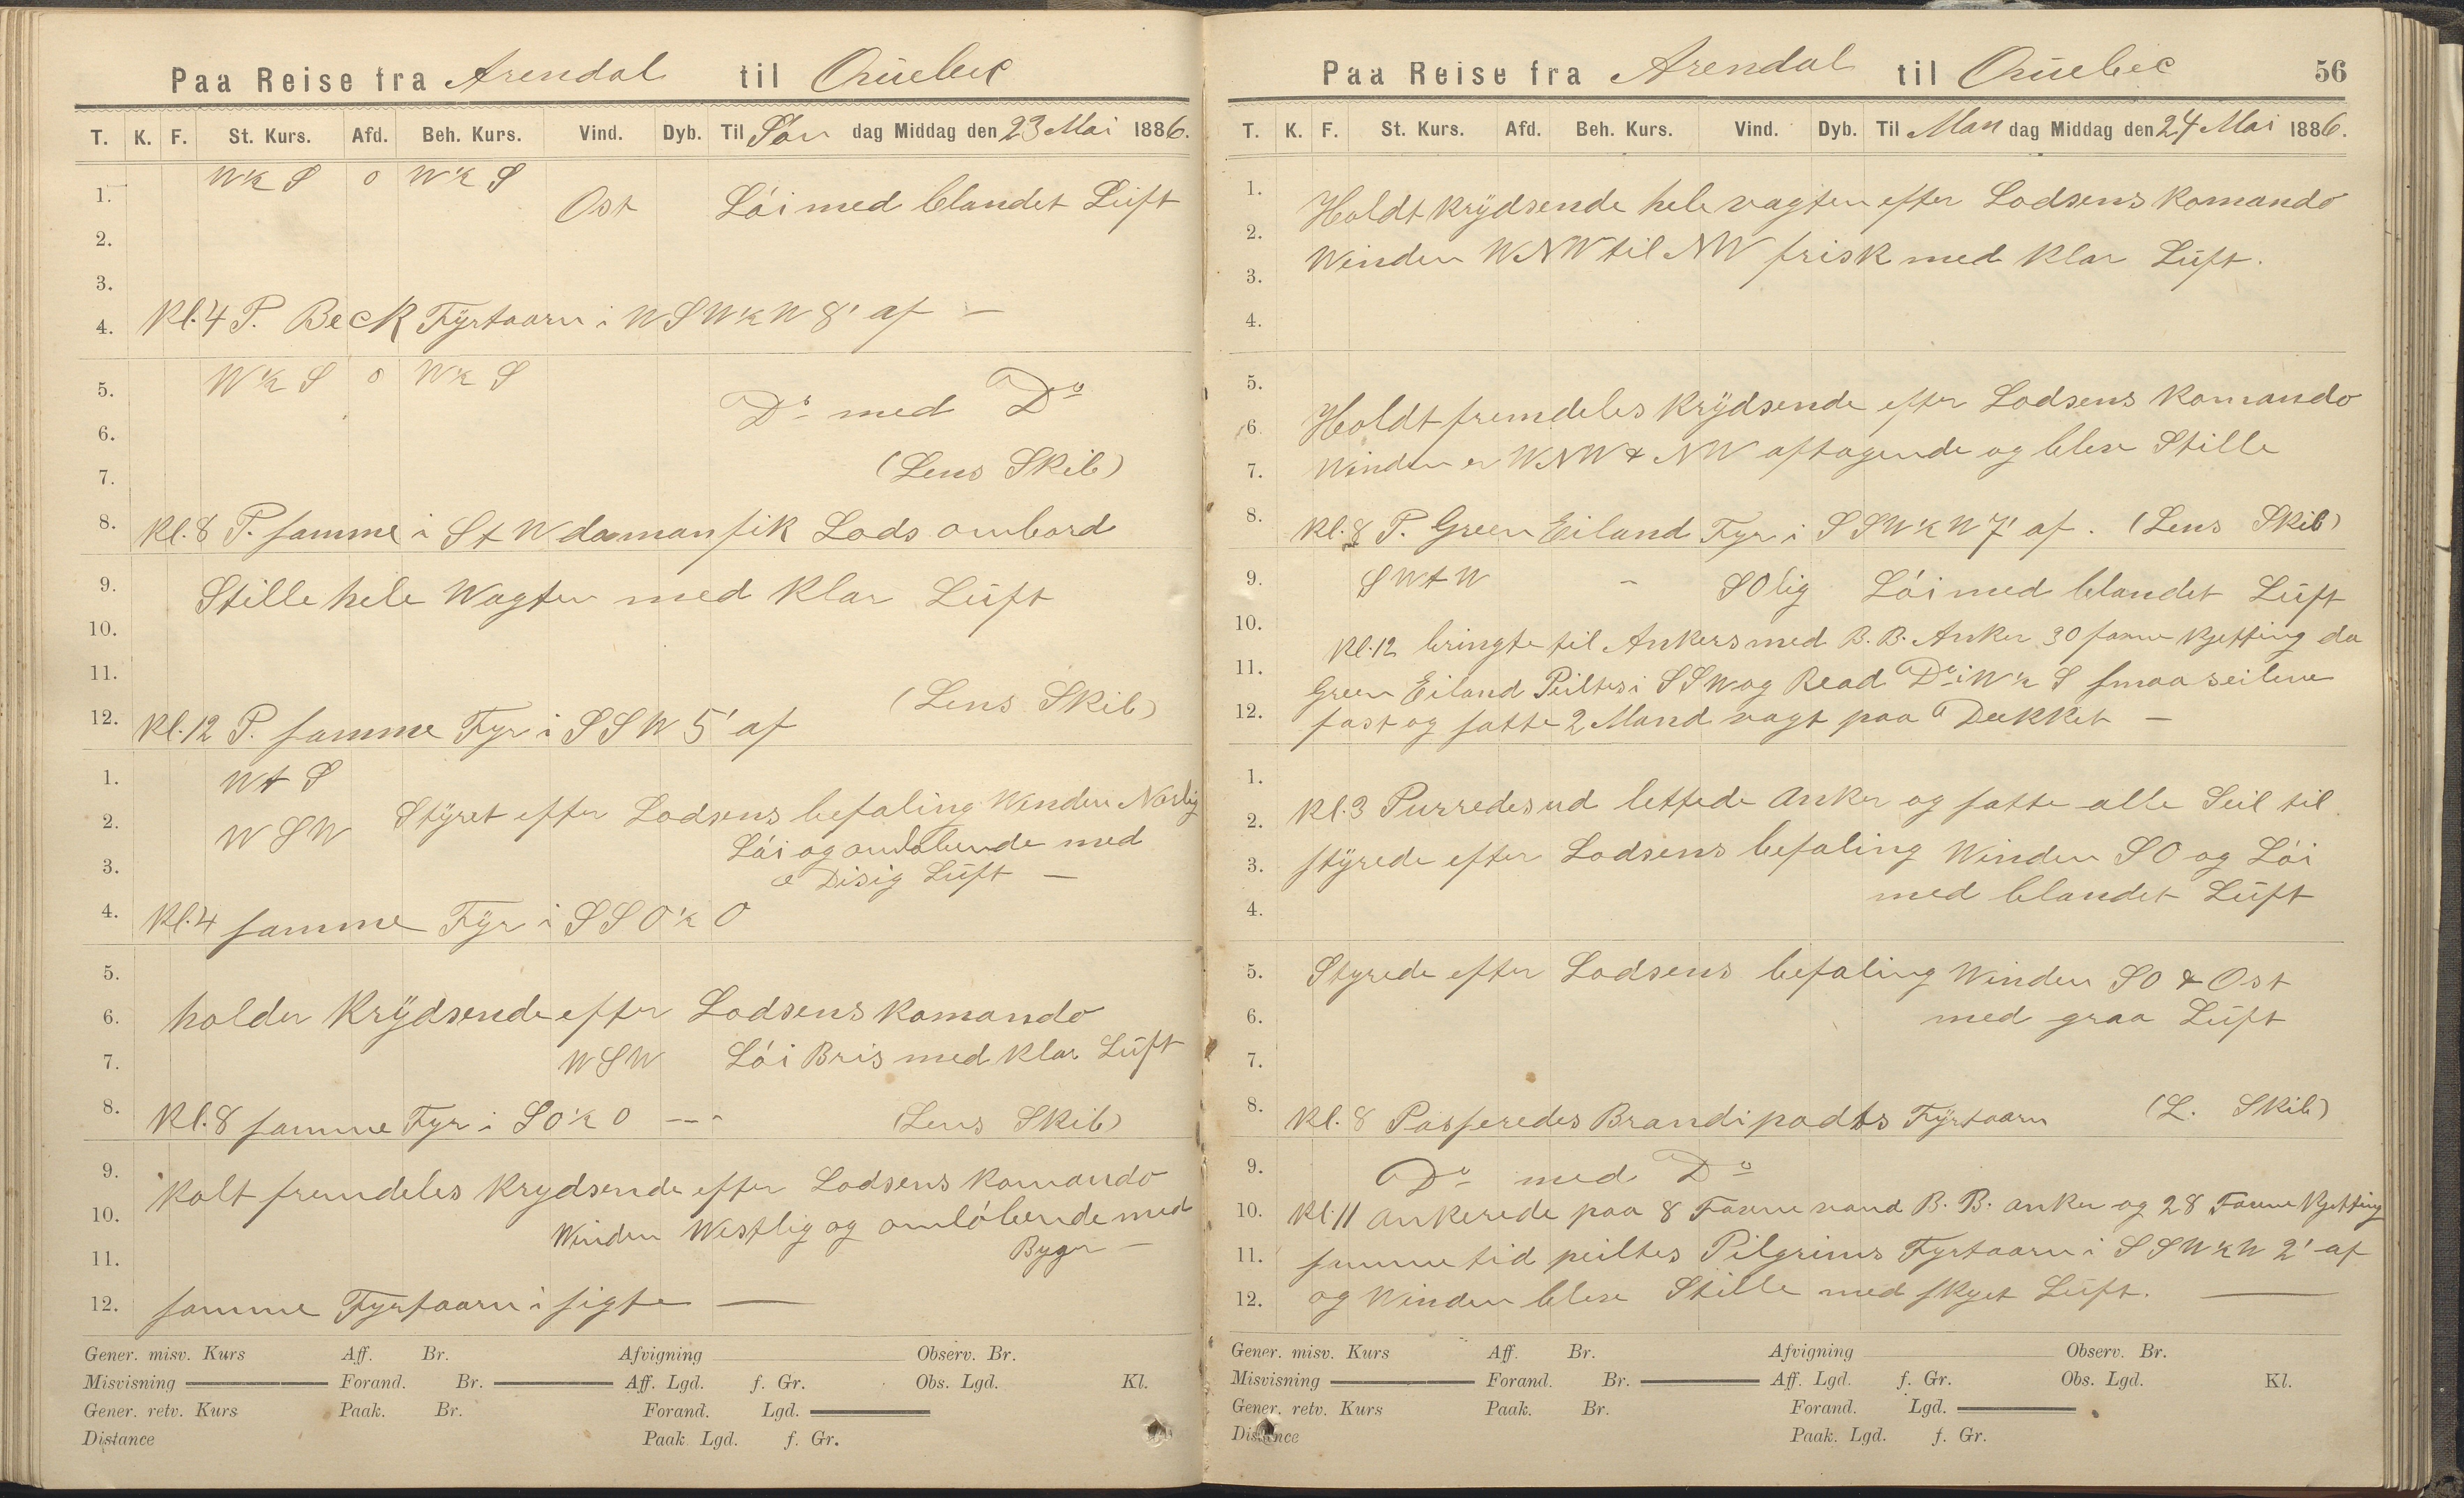 Paa Reise fra Arendal til Quebec
T. K. F. St. Kurs. Afd. Beh. Kurs. Vind. Dyb. Til Søn dag Middag den 23 Mai 1886.
W½S 0 W½S
1. Ost Løi med blandet Luft
2.
3.
4. Kl. 4 P. Beck Fyrtaarn i WSW½W 8' af —
W½S 0 W½S
5. Do med Do
6.
7. (Lens Skib)
8. Kl. 8 P. samme i StW da man fik Lods ombord
9. Stille hele Wagten med Klar Luft
10.
11. (Lens Skib)
12. Kl. 12 P. samme Fyr i SSW 5' af
1. WtS
2. WSW Styret efter Lodsens befaling Winden Norlig
Løi og omløbende med
3. Disig Luft —
4. Kl. 4 samme Fyr i SSO½O
5.
6. holder Krydsende efter Lodsens Komando
7. WSW Løi Bris med Klar Luft
8. Kl. 8 samme Fyr i SO½O (Lens Skib)
9. Holt fremdeles Krydsende efter Lodsens Komando
10. Winden Westlig og omløbende med
11. Byger —
12. samme Fyrtaarn i sigte —
Gener. misv. Kurs Aff. Br. Afvigning Observ. Br.
Misvisning Forand. Br. Aff. Lgd. f. Gr. Obs. Lgd. Kl.
Gener. retv. Kurs Paak. Br. Forand. Lgd.
Distance Paak. Lgd. f. Gr.
Paa Reise fra Arendal til Quebec 56
T. K. F. St. Kurs. Afd. Beh. Kurs. Vind. Dyb. Til Man dag Middag den 24 Mai 1886.
1. Holdt Krydsende hele vagten efter Lodsens Komando
2. Winden WNW til NW frisk med Klar Luft.
3.
4.
5.
6. Holdt fremdeles Krydsende efter Lodsens Komando
7. Winden er WNW & NW aftagende og blev Stille
8. Kl. 8 P. Green Eiland Fyr i SSW½W 7' af. (Lens Skib)
9. SWtW SOlig Løi med blandet Luft
10. Kl. 12 bringte til Ankers med B. B. Anker 30 favne Kjetting da
11. Green Eiland Peiltes i SSW og Read Do i W½S smaa seilene
12. fast og satte 2 Mand vagt paa Dekket —
1.
2. Kl. 3 Purredes ud lettede Anker og satte alle Seil til
3. styrede efter Lodsens befaling Winden SO og Løi
4. med blandet Luft
5. Styrede efter Lodsens befaling Winden SO & Ost
6. med graa Luft
7.
8. Kl. 8 Passeredes Brandipodts Fyrtaarn (L. Skib)
9. Do med Do
10. Kl. 11 ankerede paa 8 Favne vand B. B. anker og 28 Favne Kjetting
11. samme tid peiltes Pilgrims Fyrtaarn i SSW½W 2' af
12. og Winden blev Stille med skyet Luft. —
Gener. misv. Kurs Aff. Br. Afvigning Observ. Br.
Misvisning Forand. Br. Aff. Lgd. f. Gr. Obs. Lgd. Kl.
Gener. retv. Kurs Paak. Br. Forand. Lgd.
Distance Paak. Lgd. f. Gr.